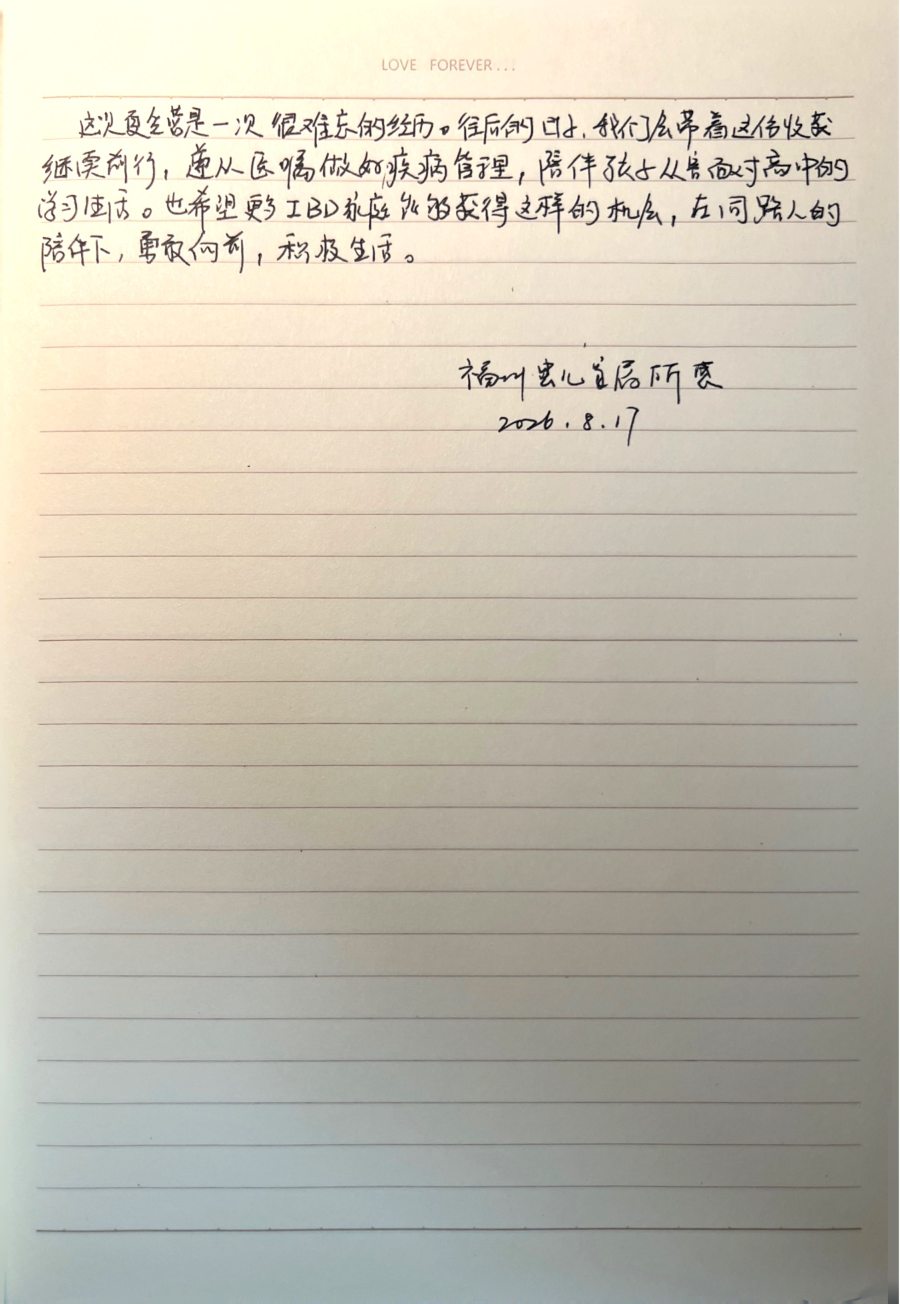 LOVE FOREVER...
这次夏令营是一次很难忘的经历。往后的日子,我们会带着这份收获
继续前行,遵从医嘱做好疾病管理,陪伴孩子从容面对高中的
学习生活。也希望更多IBD家庭能够获得这样的机会,在同路人的
陪伴下,勇敢向前,积极生活。
福州 所
2026.8.17